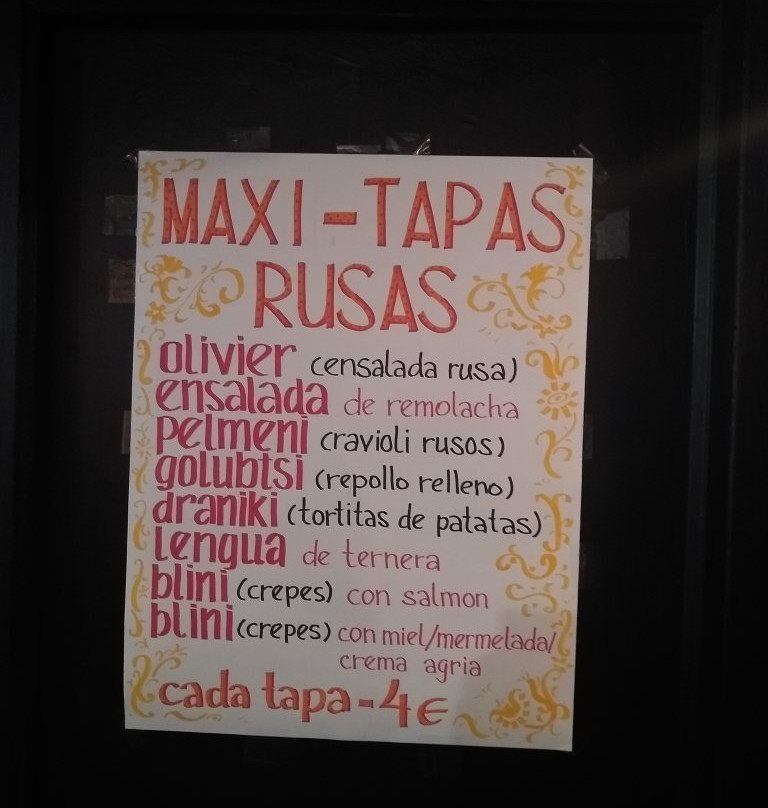 MAXI-TAPAS
RUSAS
olivier (ensalada rusa)
ensalada de remolacha
pelmeni (ravioli rusos)
golubtsi (repollo relleno)
draniki (tortitas de patatas)
lengua de ternera
blini (crepes) con salmon
blini (crepes) con miel/mermelada/
crema agria
cada tapa - 4€